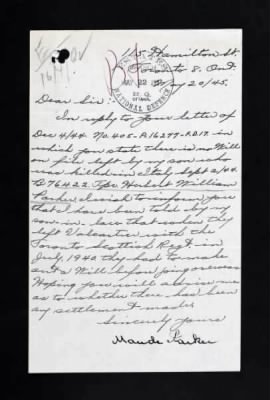 115 Hamilton St.
Toronto 8. Ont.
May 20/45.
MAY 22
NATIONAL DEFENCE
Dear Sir:-
In reply to your letter of
Dec 4/44. No. 405-P.16277-R.D.17. in
which you state there is no Will
on file left by my son who
was killed in Italy Sept 2/44.
B76422. Cpl. Herbert William
Parker, I wish to inform you
that I have been told by my
son-in-law that when they
left Valcartier with the
Toronto Scottish Regt. in
July, 1940 they had to make
out a Will before going overseas
Hoping you will advise me
as to whether there has been
any settlement made.
Sincerely yours
Maude Parker